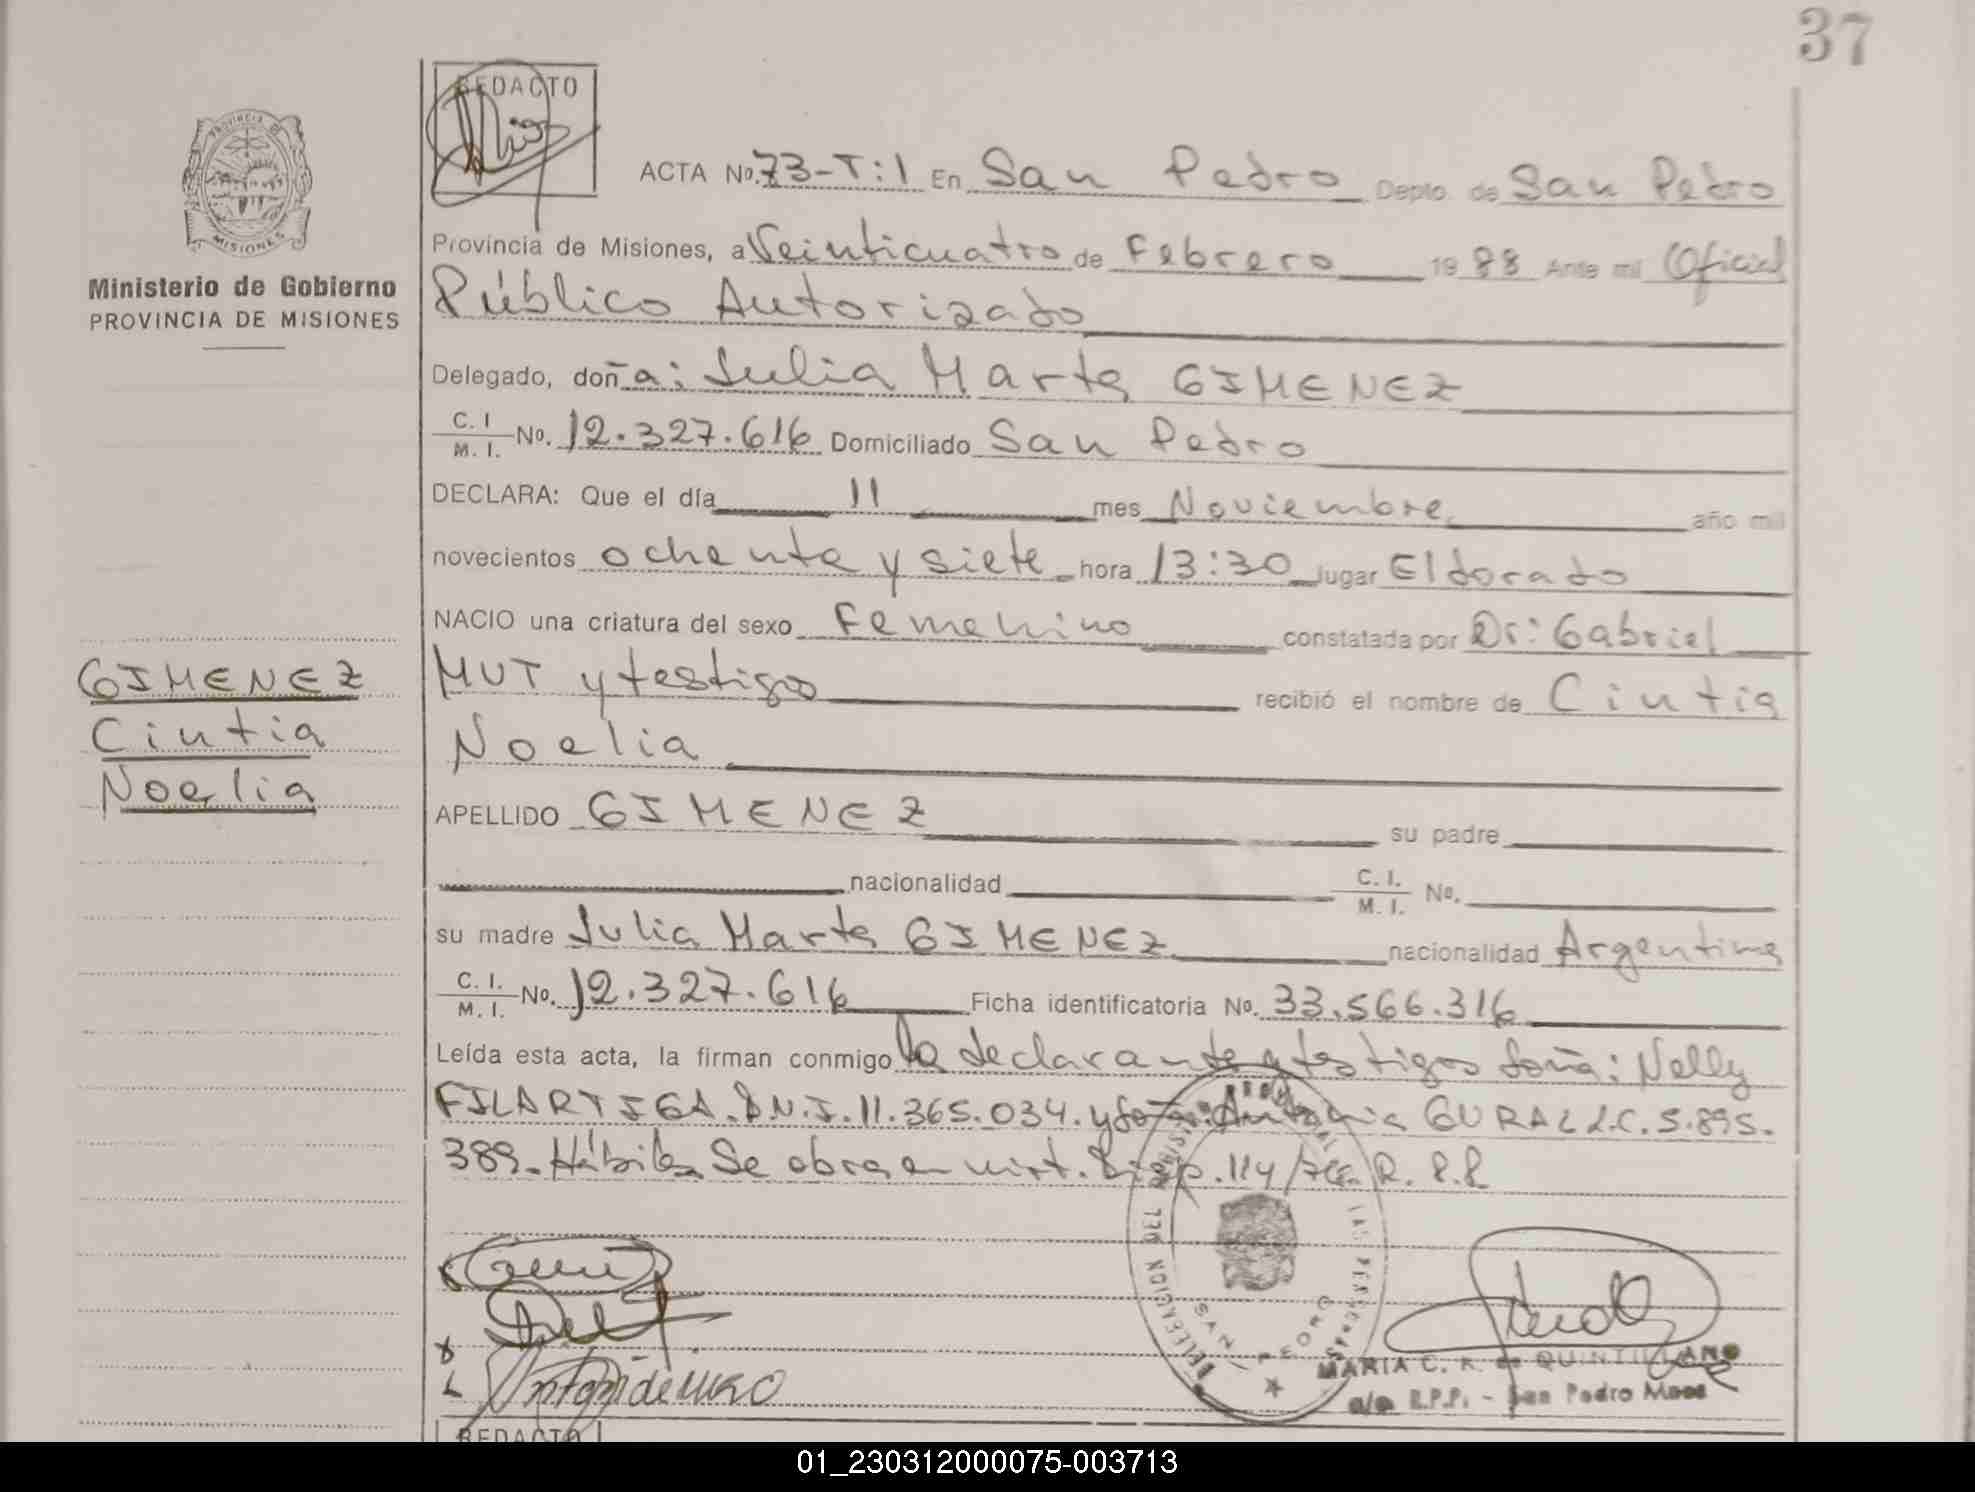 37
REDACTO
PROVINCIA DE
MISIONES
Ministerio de Gobierno
PROVINCIA DE MISIONES
ACTA No. 73-T:1 En San Pedro Depto. de San Pedro
Provincia de Misiones, a Veinticuatro de Febrero 19 88 Ante mi Oficial
Público Autorizado
Delegado, doña: Julia Marta GIMENEZ
C. I. / M. I. No. 12.327.616 Domiciliado San Pedro
DECLARA: Que el día 11 mes Noviembre año mil
novecientos ochenta y siete hora 13:30 lugar Eldorado
NACIO una criatura del sexo Femenino constatada por Dr: Gabriel
MUT y testigos recibió el nombre de Cintia
Noelia
GIMENEZ
Cintia
Noelia
APELLIDO GIMENEZ su padre
nacionalidad C. I. / M. I. No.
su madre Julia Marta GIMENEZ nacionalidad Argentina
C. I. / M. I. No. 12.327.616 Ficha identificatoria No. 33.566.316
Leída esta acta, la firman conmigo la declarante y testigos doña: Nelly
FILARTIGA. D.N.I. 11.365.034. y doña: Antonia GURAL L.C. 5.895.
389. Hábiles Se obra en virt. Disp. 114/ R. 88
DELEGACION DEL REGISTRO LAS PERSONAS
SAN PEDRO
MARIA C. R. de QUINTILLANO
a/c R.P.P. - San Pedro Mnes
REDACTO
01_230312000075-003713